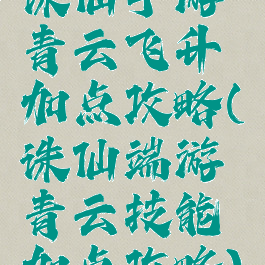 诛仙手游
青云飞升
加点攻略(
诛仙端游
青云技能
加点攻略)